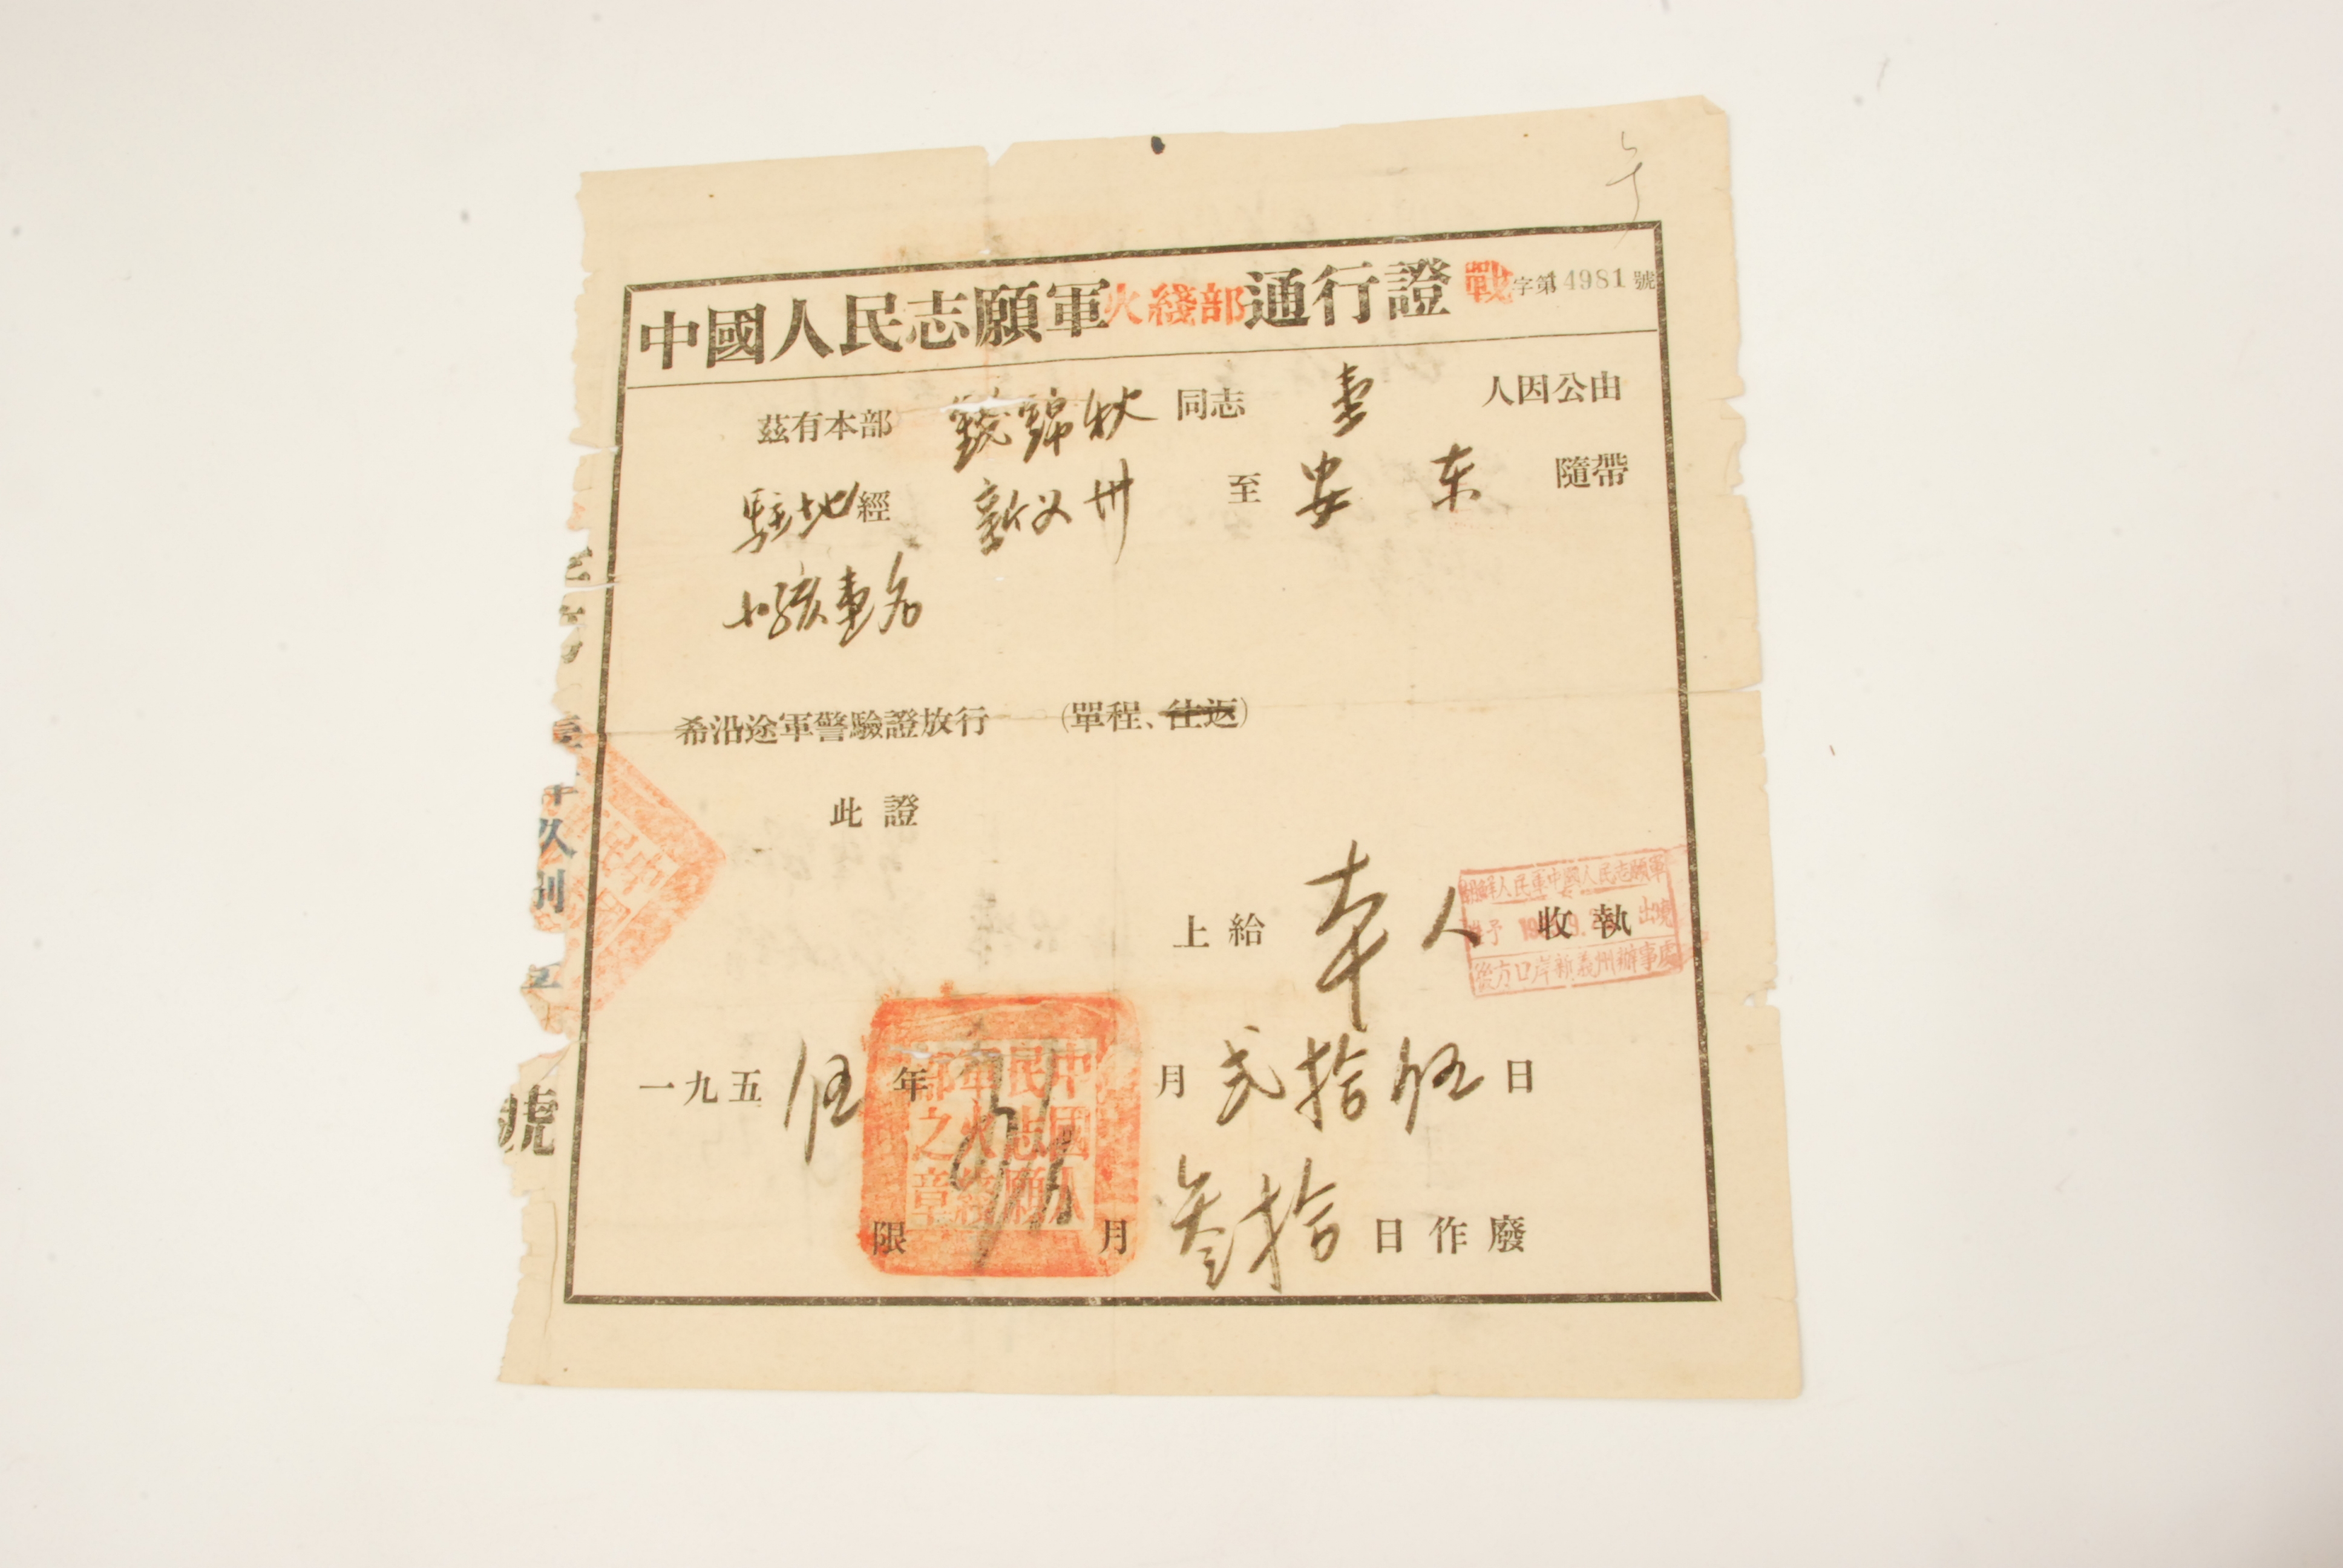 中國人民志願軍火綫部通行證 戰字第14981號
茲有本部 錦秋 同志 壹 人因公由
駐地經 新义州 至 安东 隨帶
小孩壹名
希沿途軍警驗證放行 (單程、往返)
此證
上給 本人 收執
朝鮮人民軍中國人民志願軍
准予 出境
後方口岸新義州辦事處
一九五伍年 玖 月 弍拾伍 日
限 玖 月 叁拾 日作廢
中國人民志願軍火綫部之章
號